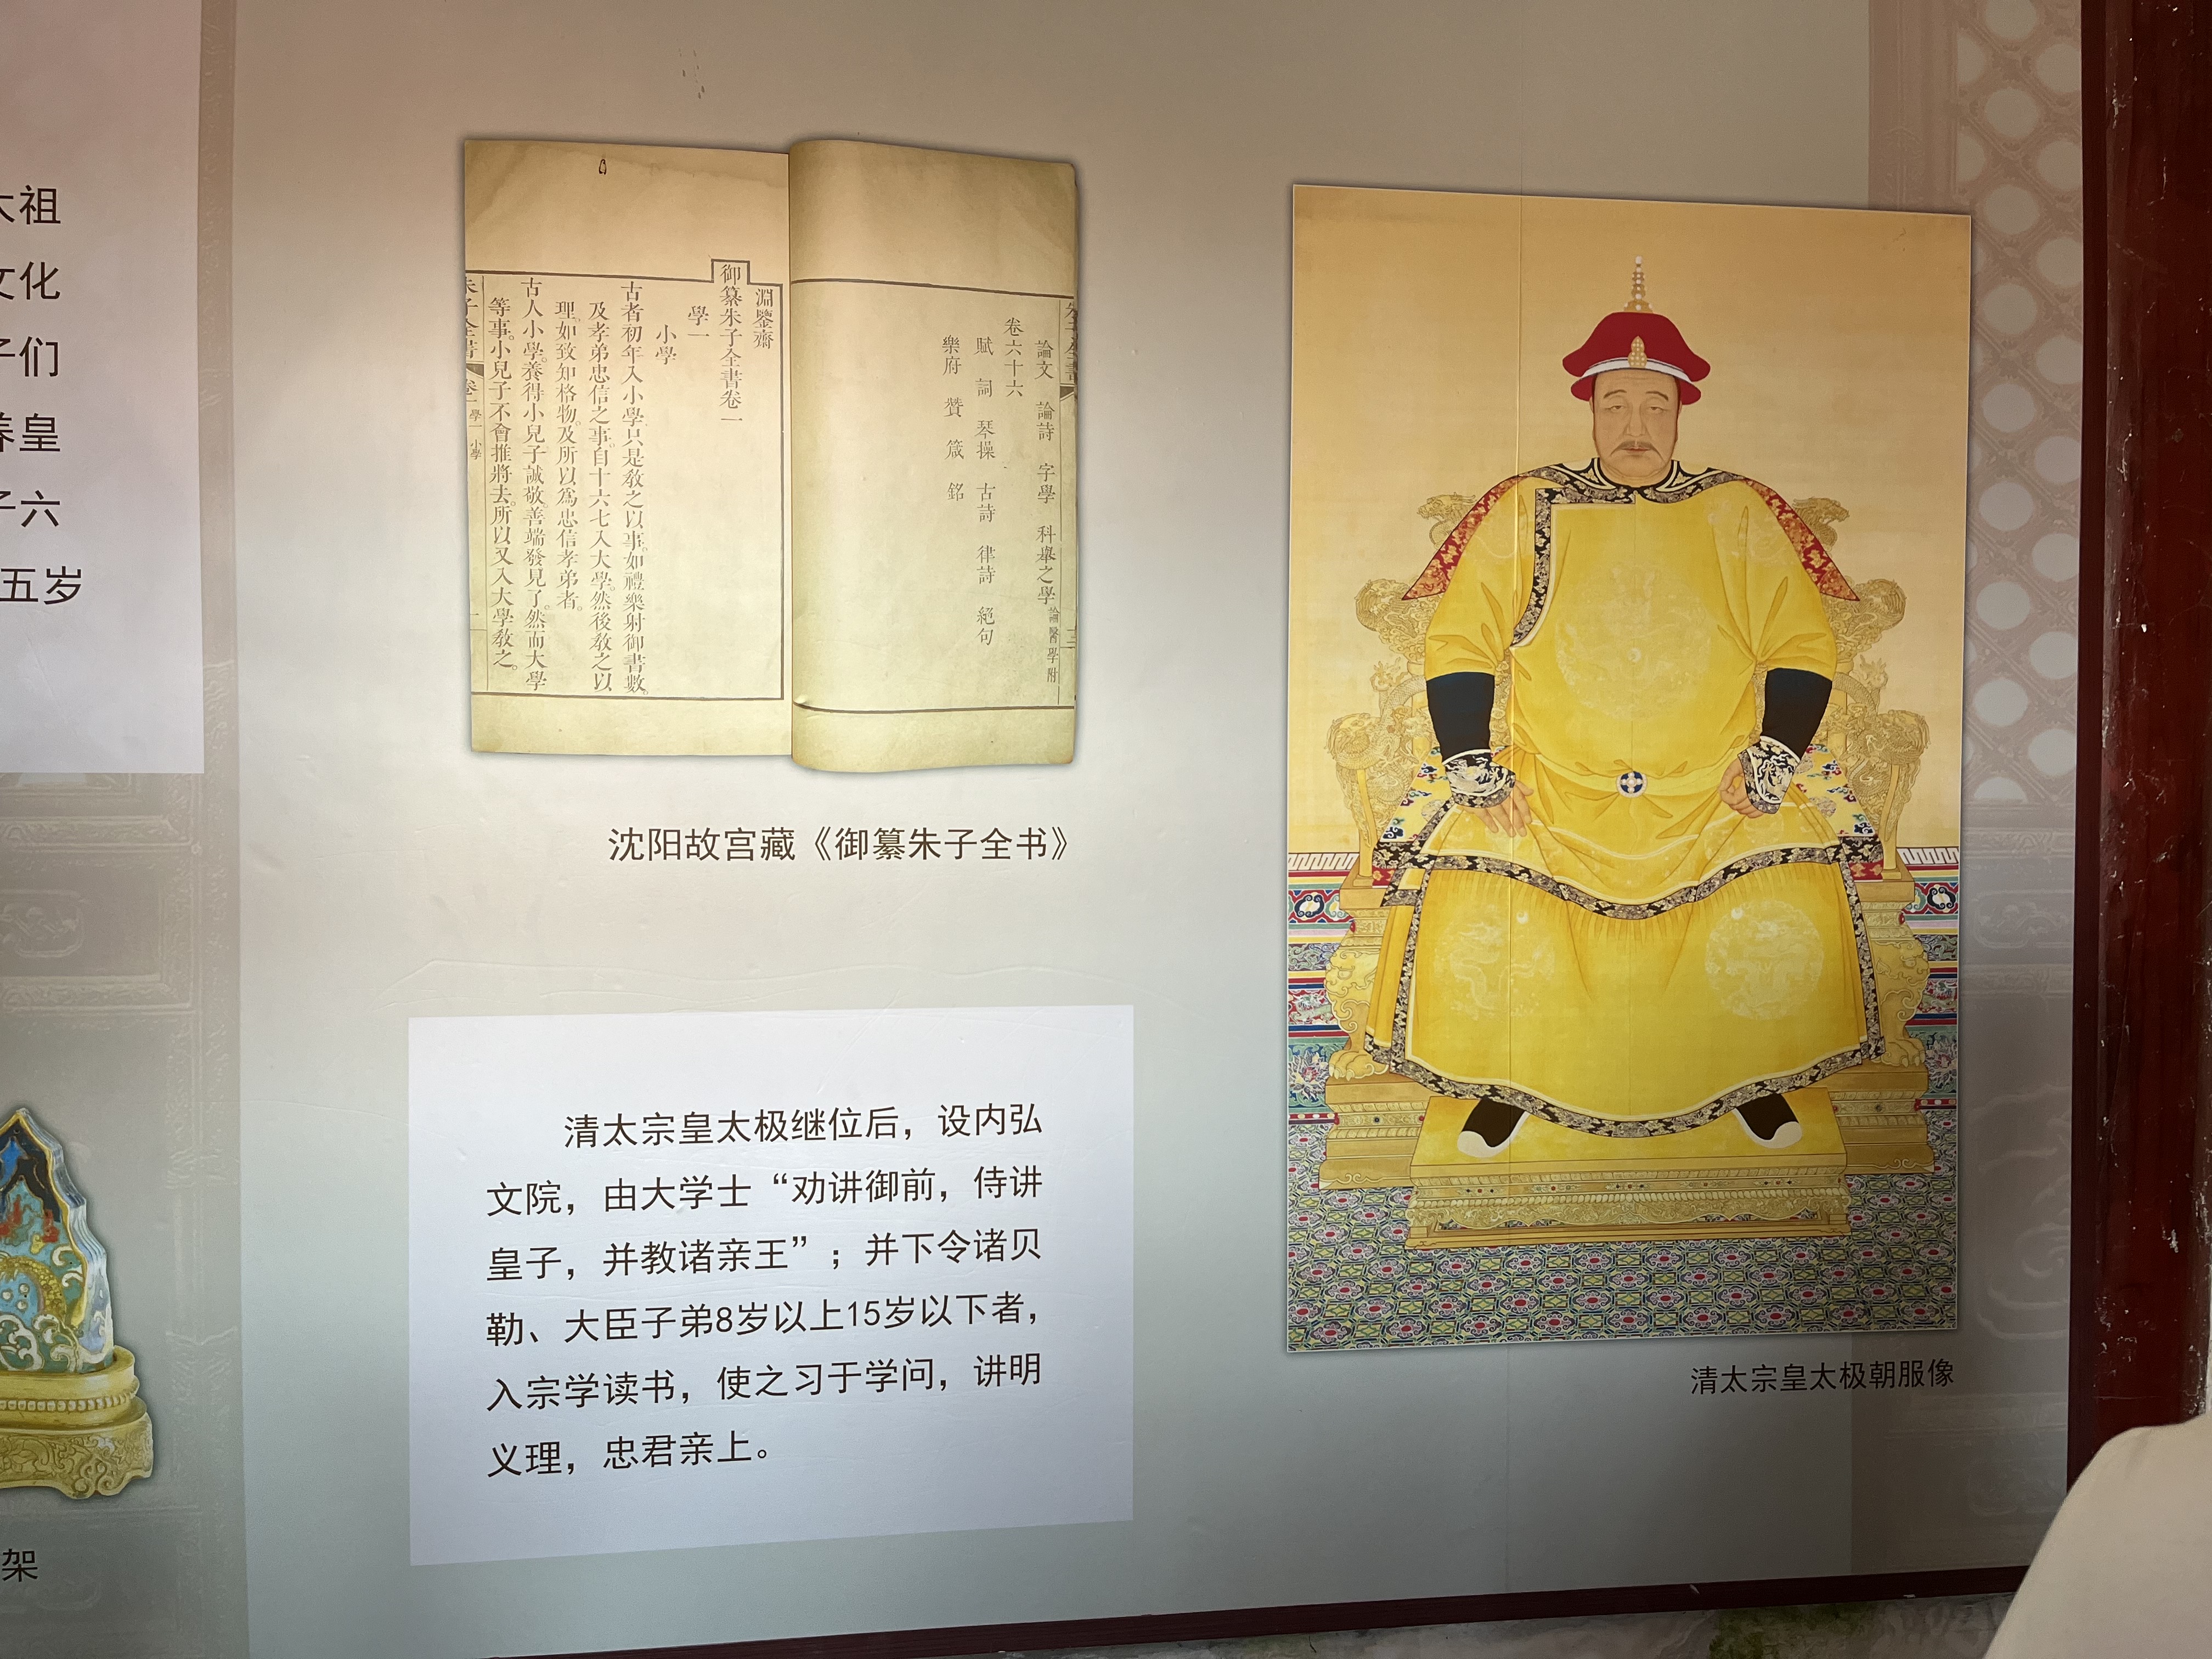 太祖
文化
子们
养皇
子六
五岁
架
論文 論詩 字學 科舉之學 論醫學附
卷六十六
賦 詞 琴操 古詩 律詩 絕句
樂府 贊 箴 銘
淵鑒齋
御纂朱子全書卷一
學一
小學
古者初年入小學只是教之以事如禮樂射御書數
及孝弟忠信之事自十六七入大學然後教之以
理如致知格物及所以為忠信孝弟者。
古人小學養得小兒子誠敬善端發見了然而大學
等事小兒子不會推將去所以又入大學教之。
朱子全書 卷一 學一 小學
沈阳故宫藏《御纂朱子全书》
清太宗皇太极继位后，设内弘
文院，由大学士“劝讲御前，侍讲
皇子，并教诸亲王”；并下令诸贝
勒、大臣子弟8岁以上15岁以下者，
入宗学读书，使之习于学问，讲明
义理，忠君亲上。
清太宗皇太极朝服像